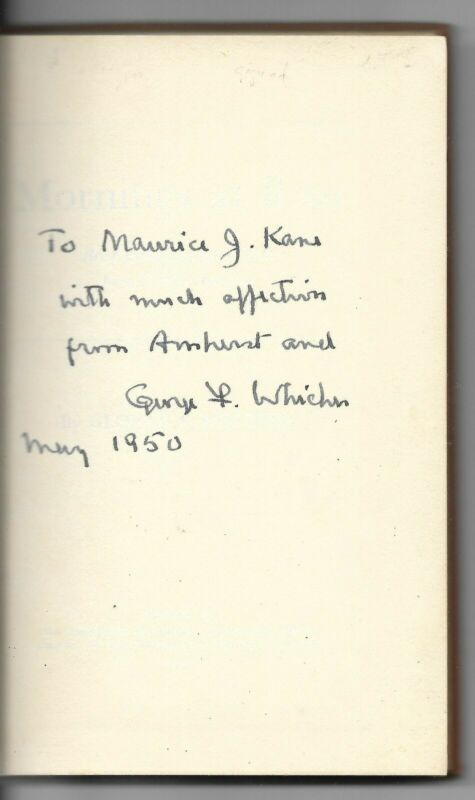 To Maurice J. Kane
with much affection
from Amherst and
George F. Whicher
May 1950